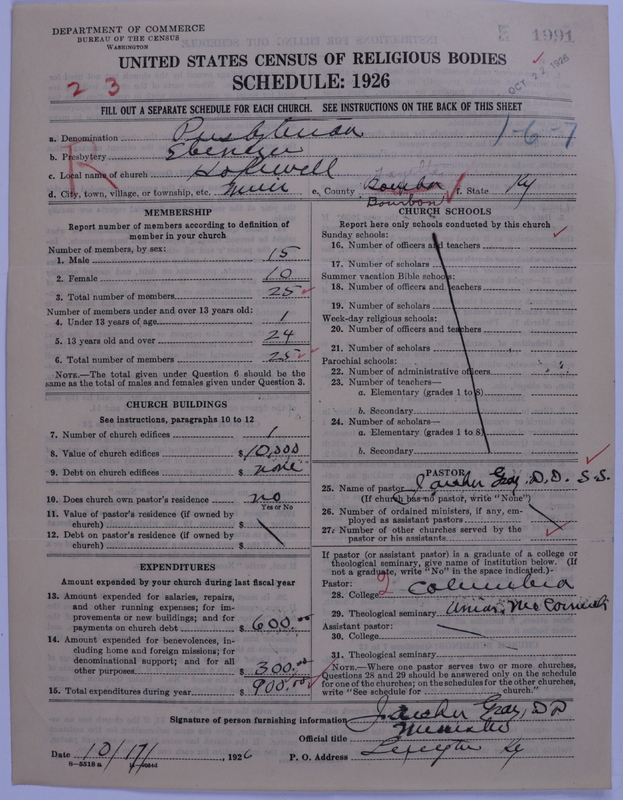 DEPARTMENT OF COMMERCE
BUREAU OF THE CENSUS
WASHINGTON
1991
UNITED STATES CENSUS OF RELIGIOUS BODIES
SCHEDULE: 1926
OCT 22 1926
2 3
FILL OUT A SEPARATE SCHEDULE FOR EACH CHURCH. SEE INSTRUCTIONS ON THE BACK OF THIS SHEET
1-6-7
R
a. Denomination Presbyterian
b. Presbytery Ebenezer
c. Local name of church Hopewell
Fayette
d. City, town, village, or township, etc. Muir e. County Bourbon f. State Ky
Bourbon
MEMBERSHIP
Report number of members according to definition of
member in your church
Number of members, by sex:
1. Male 15
2. Female 10
3. Total number of members 25
Number of members under and over 13 years old:
4. Under 13 years of age 1
5. 13 years old and over 24
6. Total number of members 25
NOTE.—The total given under Question 6 should be the
same as the total of males and females given under Question 3.
CHURCH BUILDINGS
See instructions, paragraphs 10 to 12
7. Number of church edifices 1
8. Value of church edifices $ 10,000
9. Debt on church edifices $ none
10. Does church own pastor's residence no
Yes or No
11. Value of pastor's residence (if owned by
church) $
12. Debt on pastor's residence (if owned by
church) $
EXPENDITURES
Amount expended by your church during last fiscal year
13. Amount expended for salaries, repairs,
and other running expenses; for im-
provements or new buildings; and for
payments on church debt $ 600.00
14. Amount expended for benevolences, in-
cluding home and foreign missions; for
denominational support; and for all
other purposes $ 300.00
15. Total expenditures during year $ 900.00
CHURCH SCHOOLS
Report here only schools conducted by this church
Sunday schools:
16. Number of officers and teachers
17. Number of scholars
Summer vacation Bible schools:
18. Number of officers and teachers
19. Number of scholars
Week-day religious schools:
20. Number of officers and teachers
21. Number of scholars
Parochial schools:
22. Number of administrative officers
23. Number of teachers—
a. Elementary (grades 1 to 8)
b. Secondary
24. Number of scholars—
a. Elementary (grades 1 to 8)
b. Secondary
PASTOR
25. Name of pastor Gray, D.D. S.S.
(If church has no pastor, write "None")
26. Number of ordained ministers, if any, em-
ployed as assistant pastors
27. Number of other churches served by the
pastor or his assistants
If pastor (or assistant pastor) is a graduate of a college or
theological seminary, give name of institution below. (If
not a graduate, write "No" in the space indicated.)
Pastor:
28. College 2 Columbia
29. Theological seminary Union, McCormick
Assistant pastor:
30. College
31. Theological seminary
NOTE.—Where one pastor serves two or more churches,
Questions 28 and 29 should be answered only on the schedule
for one of the churches; on the schedules for the other churches,
write "See schedule for church."
Signature of person furnishing information Gray, DD
Official title Minister
Date 10/17/ , 1926 P. O. Address Lexington Ky
8-5518 a